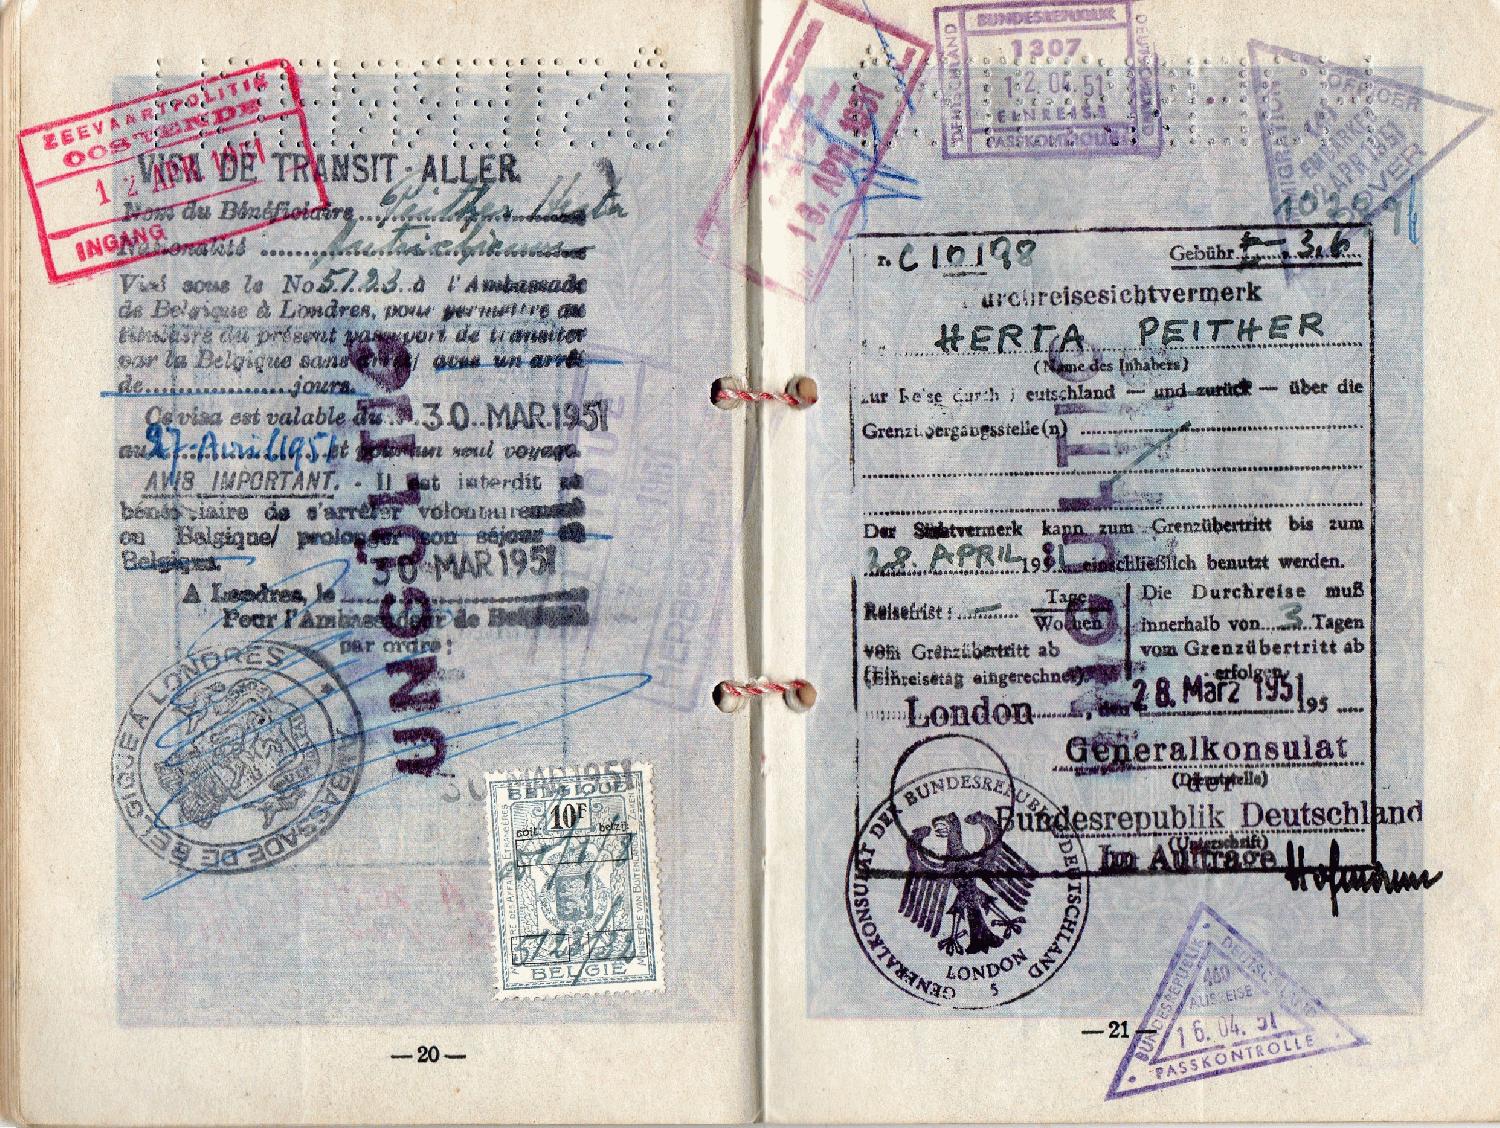 ZEEVAARTPOLITIE
OOSTENDE
12 APR 1951
INGANG
VISA DE TRANSIT-ALLER
Nom du Bénéficiaire Peither Herta
Nationalité : Autrichienne
Visé sous le No 5123 à l'Ambassade
de Belgique à Londres, pour permettre au
titulaire du présent passeport de transiter
par la Belgique sans arrêt/ avec un arrêt
de jours.
Ce visa est valable du 30 MAR 1951
au 27 Avril 1951 et pour un seul voyage.
AVIS IMPORTANT. - Il est interdit au
bénéficiaire de s'arrêter volontairement
ou Belgique/ prolonger son séjour en
Belgique.
30 MAR 1951
A Londres, le
Pour l'Ambassadeur de Belgique
par ordre:
UNGÜLTIG
AMBASSADE DE BELGIQUE À LONDRES
30 MAR 1951
BELGIQUE
10F
5123
BELGIË
—20—
16. APR 1951
BUNDESREPUBLIK
DEUTSCHLAND
1307
12.04.51
EINREISE
PASSKONTROLLE
IMMIGRATION OFFICER
EMBARKED
12 APR 1951
DOVER
r. C 10198 Gebühr 3,6
urchreisesichtvermerk
HERTA PEITHER
(Name des Inhabers)
zur Reise durch Deutschland — und zurück — über die
Grenzübergangsstelle(n)
Der Sichtvermerk kann zum Grenzübertritt bis zum
28. APRIL 1951 einschließlich benutzt werden.
Reisefrist: — Tage
Wochen
vom Grenzübertritt ab
(Einreisetag eingerechnet).
Die Durchreise muß
innerhalb von 3 Tagen
vom Grenzübertritt ab
erfolgen.
London, den 28. März 1951 195
Generalkonsulat
(Dienststelle)
der
Bundesrepublik Deutschland
(Unterschrift)
Im Auftrage Hofmann
UNGÜLTIG
GENERALKONSULAT DER BUNDESREPUBLIK DEUTSCHLAND
LONDON
5
BUNDESREPUBLIK DEUTSCHLAND
440
AUSREISE
16.04.51
PASSKONTROLLE
—21—